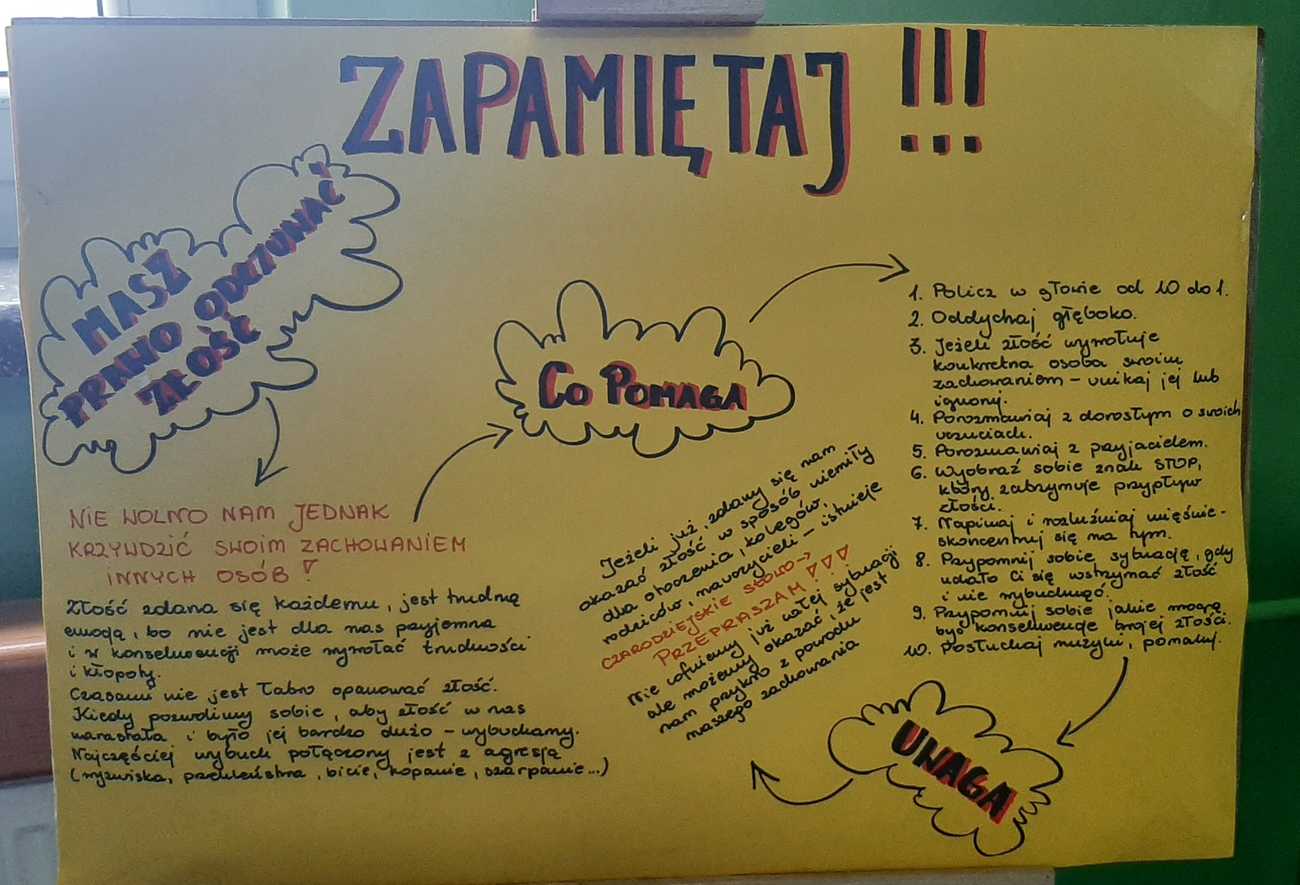 ZAPAMIĘTAJ !!!
MASZ
PRAWO ODCZUWAĆ
ZŁOŚĆ
NIE WOLNO NAM JEDNAK
KRZYWDZIĆ SWOIM ZACHOWANIEM
INNYCH OSÓB !
Złość zdarza się każdemu, jest trudną
emocją, bo nie jest dla nas przyjemna
i w konsekwencji może wywołać trudności
i kłopoty.
Czasami nie jest łatwo opanować złość.
Kiedy pozwolimy sobie, aby złość w nas
narastała i było jej bardzo dużo - wybuchamy.
Najczęściej wybuch połączony jest z agresją
(wyzwiska, przekleństwa, bicie, kopanie, szarpanie...)
CO POMAGA
1. Policz w głowie od 10 do 1.
2. Oddychaj głęboko.
3. Jeżeli złość wywołuje
konkretna osoba swoim
zachowaniem - unikaj jej lub
ignoruj.
4. Porozmawiaj z dorosłym o swoich
uczuciach.
5. Porozmawiaj z przyjacielem.
6. Wyobraź sobie znak STOP,
który zatrzymuje przypływ
złości.
7. Napinaj i rozluźniaj mięśnie -
skoncentruj się na tym.
8. Przypomnij sobie sytuację, gdy
udało Ci się wstrzymać złość
i nie wybuchnąć.
9. Przypomnij sobie jakie mogą
być konsekwencje twojej złości.
10. Posłuchaj muzyki, pomaluj.
UWAGA
Jeżeli już zdarzy się nam
okazać złość w sposób niemiły
dla otoczenia, kolegów,
rodziców, nauczycieli - istnieje
CZARODZIEJSKIE SŁOWO →
PRZEPRASZAM !!!
Nie cofniemy już całej sytuacji
ale możemy okazać, że jest
nam przykro z powodu
naszego zachowania